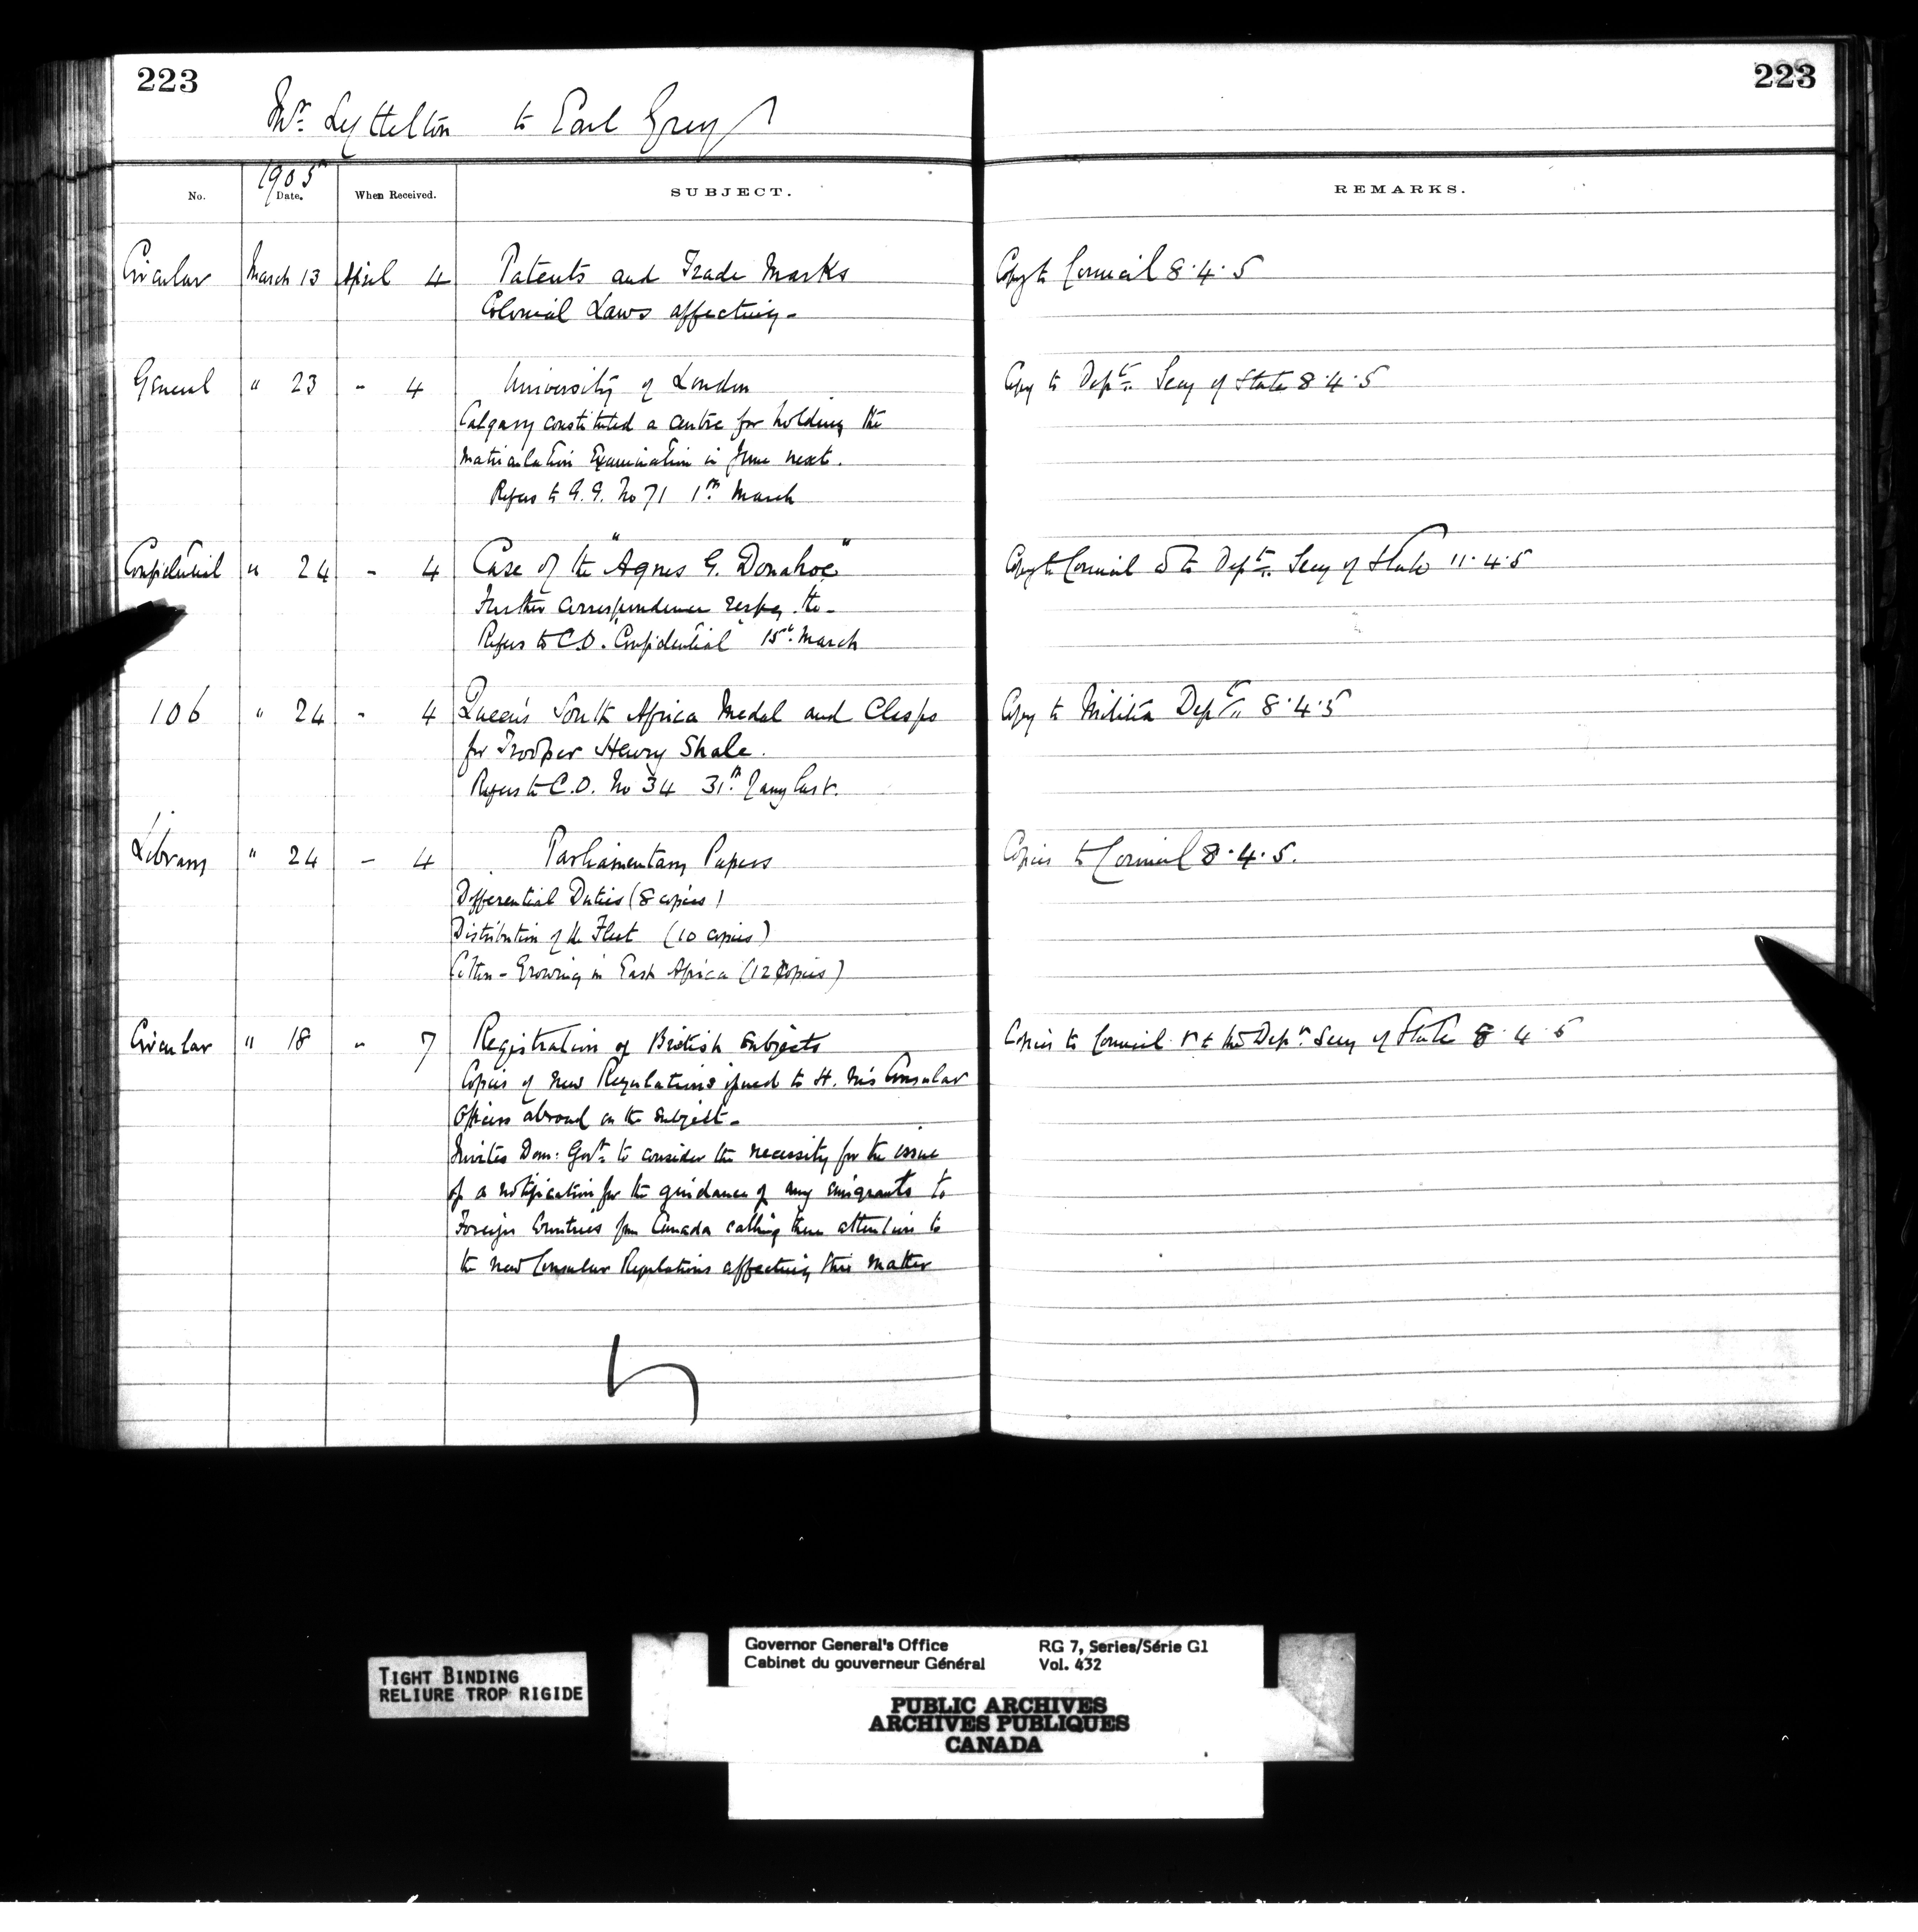 223
223
Mr. Lyttelton to Earl Grey
1905
No. Date. When Received. SUBJECT. REMARKS.
Circular March 13 April 4 Patents and Trade Marks Copy to Council 8.4.5
Colonial Laws affecting -
General " 23 - 4 University of London Copy to Dept. Secy of State 8.4.5
Calgary constituted a centre for holding the
Matriculation Examination in June next.
Refers to G.G. No 71 1st March
Confidential " 24 - 4 Case of the "Agnes G. Donahoe" Copy to Council & to Dept. Secy of State 11.4.5
Further correspondence respg. the -
Refers to C.O. "Confidential" 15th March
106 " 24 - 4 Queen's South Africa Medal and Clasps Copy to Militia Dept. 8.4.5
for Trooper Henry Shale.
Refers to C.O. No 34 31st Jany last.
Library " 24 - 4 Parliamentary Papers Copies to Council 8.4.5.
Differential Duties (8 copies)
Distribution of the Fleet (10 copies)
Cotton-Growing in East Africa (12 copies)
Circular " 18 " 7 Registration of British Subjects Copies to Council & to the Dept. Secy of State 8.4.5
Copies of new Regulations issued to H. M's Consular
Officers abroad on the subject -
Invites Dom: Govt. to consider the necessity for the issue
of a notification for the guidance of any emigrants to
Foreign Countries from Canada calling their attention to
the new Consular Regulations affecting this matter
TIGHT BINDING
RELIURE TROP RIGIDE
Governor General's Office RG 7, Series/Série G1
Cabinet du gouverneur Général Vol. 432
PUBLIC ARCHIVES
ARCHIVES PUBLIQUES
CANADA